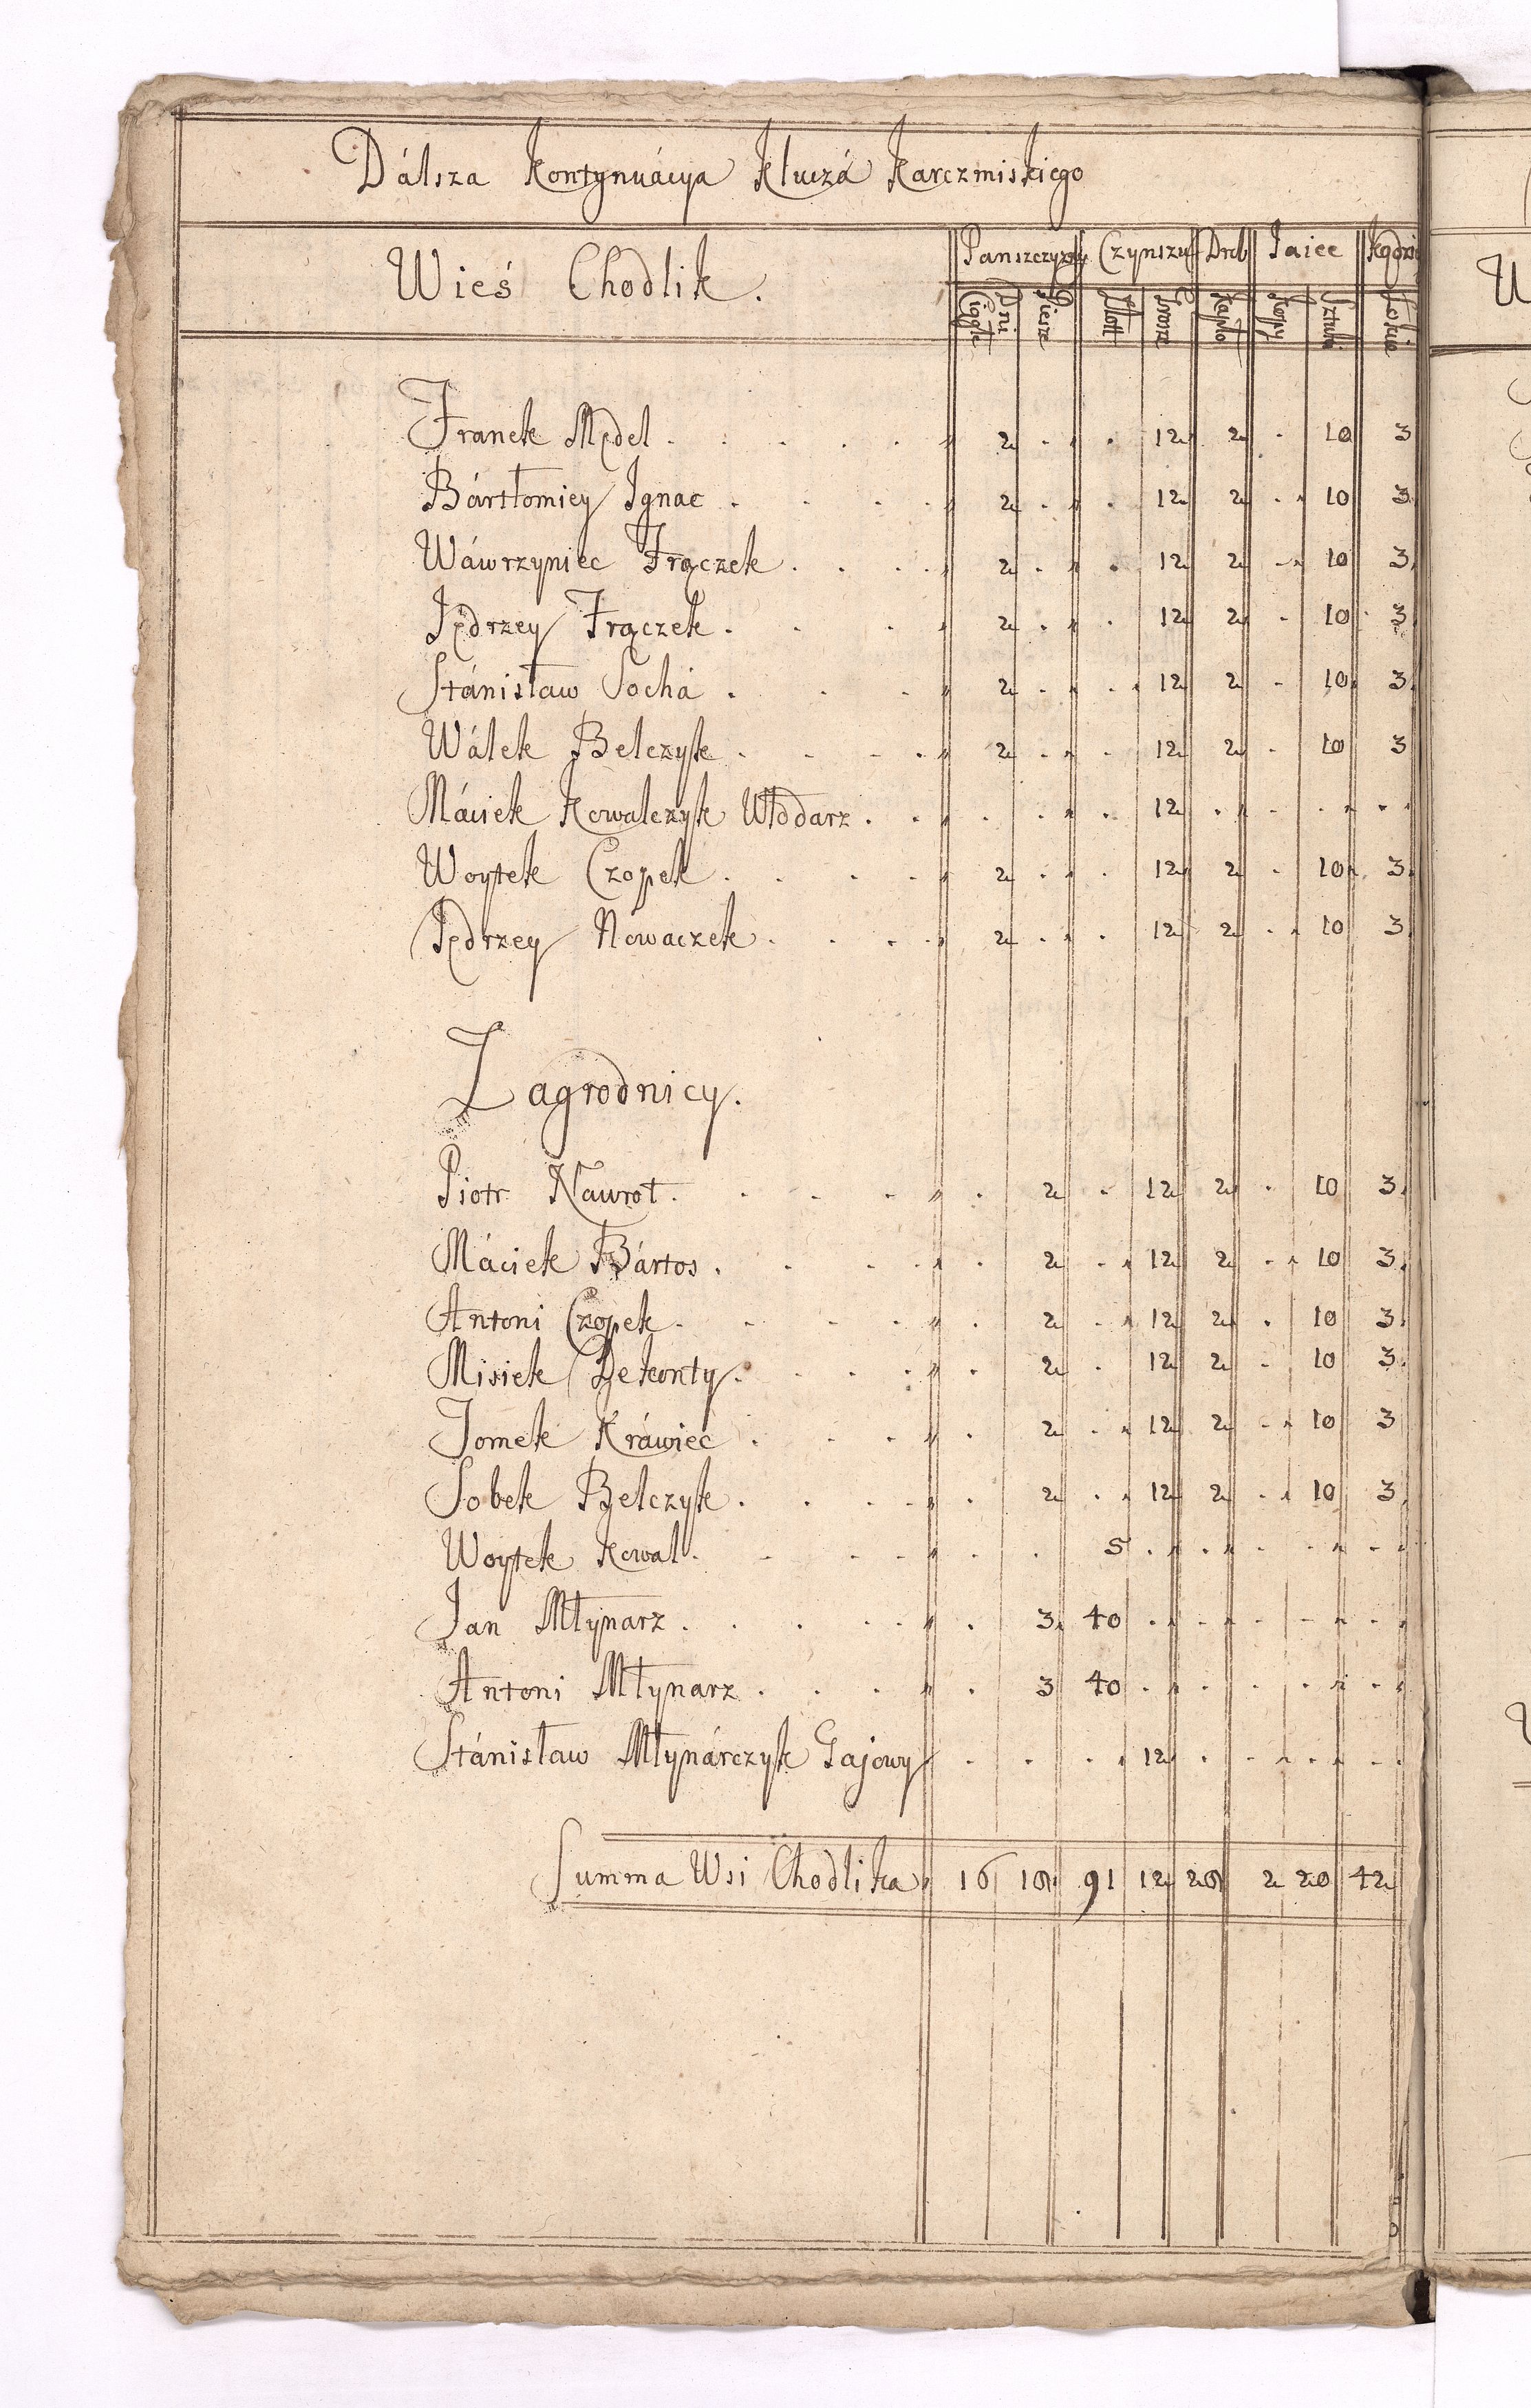 Dálsza Kontynuácya Kluczá Karczmiskiego
Wieś Chodlik. Panszczyzny Czynszu Drob Jaiec
Dni Ciągłe Piesze Złott Grosze Kapło Kopy Sztuki Łokcie
Franek Mędel . . . . . 2 . . 12 2 . 10 3
Bártłomiey Ignac . . . . 2 . . 12 2 . 10 3
Wáwrzyniec Frączek . . . . 2 . . 12 2 . 10 3
Jędrzey Frączek . . . 2 . . 12 2 . 10 3
Stánisław Sochá . . . 2 . . 12 2 . 10 3
Wálek Belczyk . . . . 2 . . 12 2 . 10 3
Máciek Kowalczyk Włodarz . . . . . 12 . . . .
Woytek Czopek . . . . 2 . . 12 2 . 10 3
Jędrzey Nowaczek . . . . 2 . . 12 2 . 10 3
Zagrodnicy.
Piotr Nawrot . . . . . 2 . 12 2 . 10 3
Máciek Bártos . . . . 2 . 12 2 . 10 3
Antoni Czopek . . . . 2 . 12 2 . 10 3
Misiek Dekonty . . . . . 2 . 12 2 . 10 3
Tomek Kráwiec . . . . 2 . 12 2 . 10 3
Sobek Belczyk . . . . . 2 . 12 2 . 10 3
Woytek Kowal . . . . . . 5 . . . . .
Jan Młynarz . . . . . 3 40 . . . . .
Antoni Młynarz . . . . . 3 40 . . . . .
Stánisław Młynárczyk Gajowy . . . 12 . . . .
Summa Wsi Chodlika 16 18 91 12 28 2 20 42